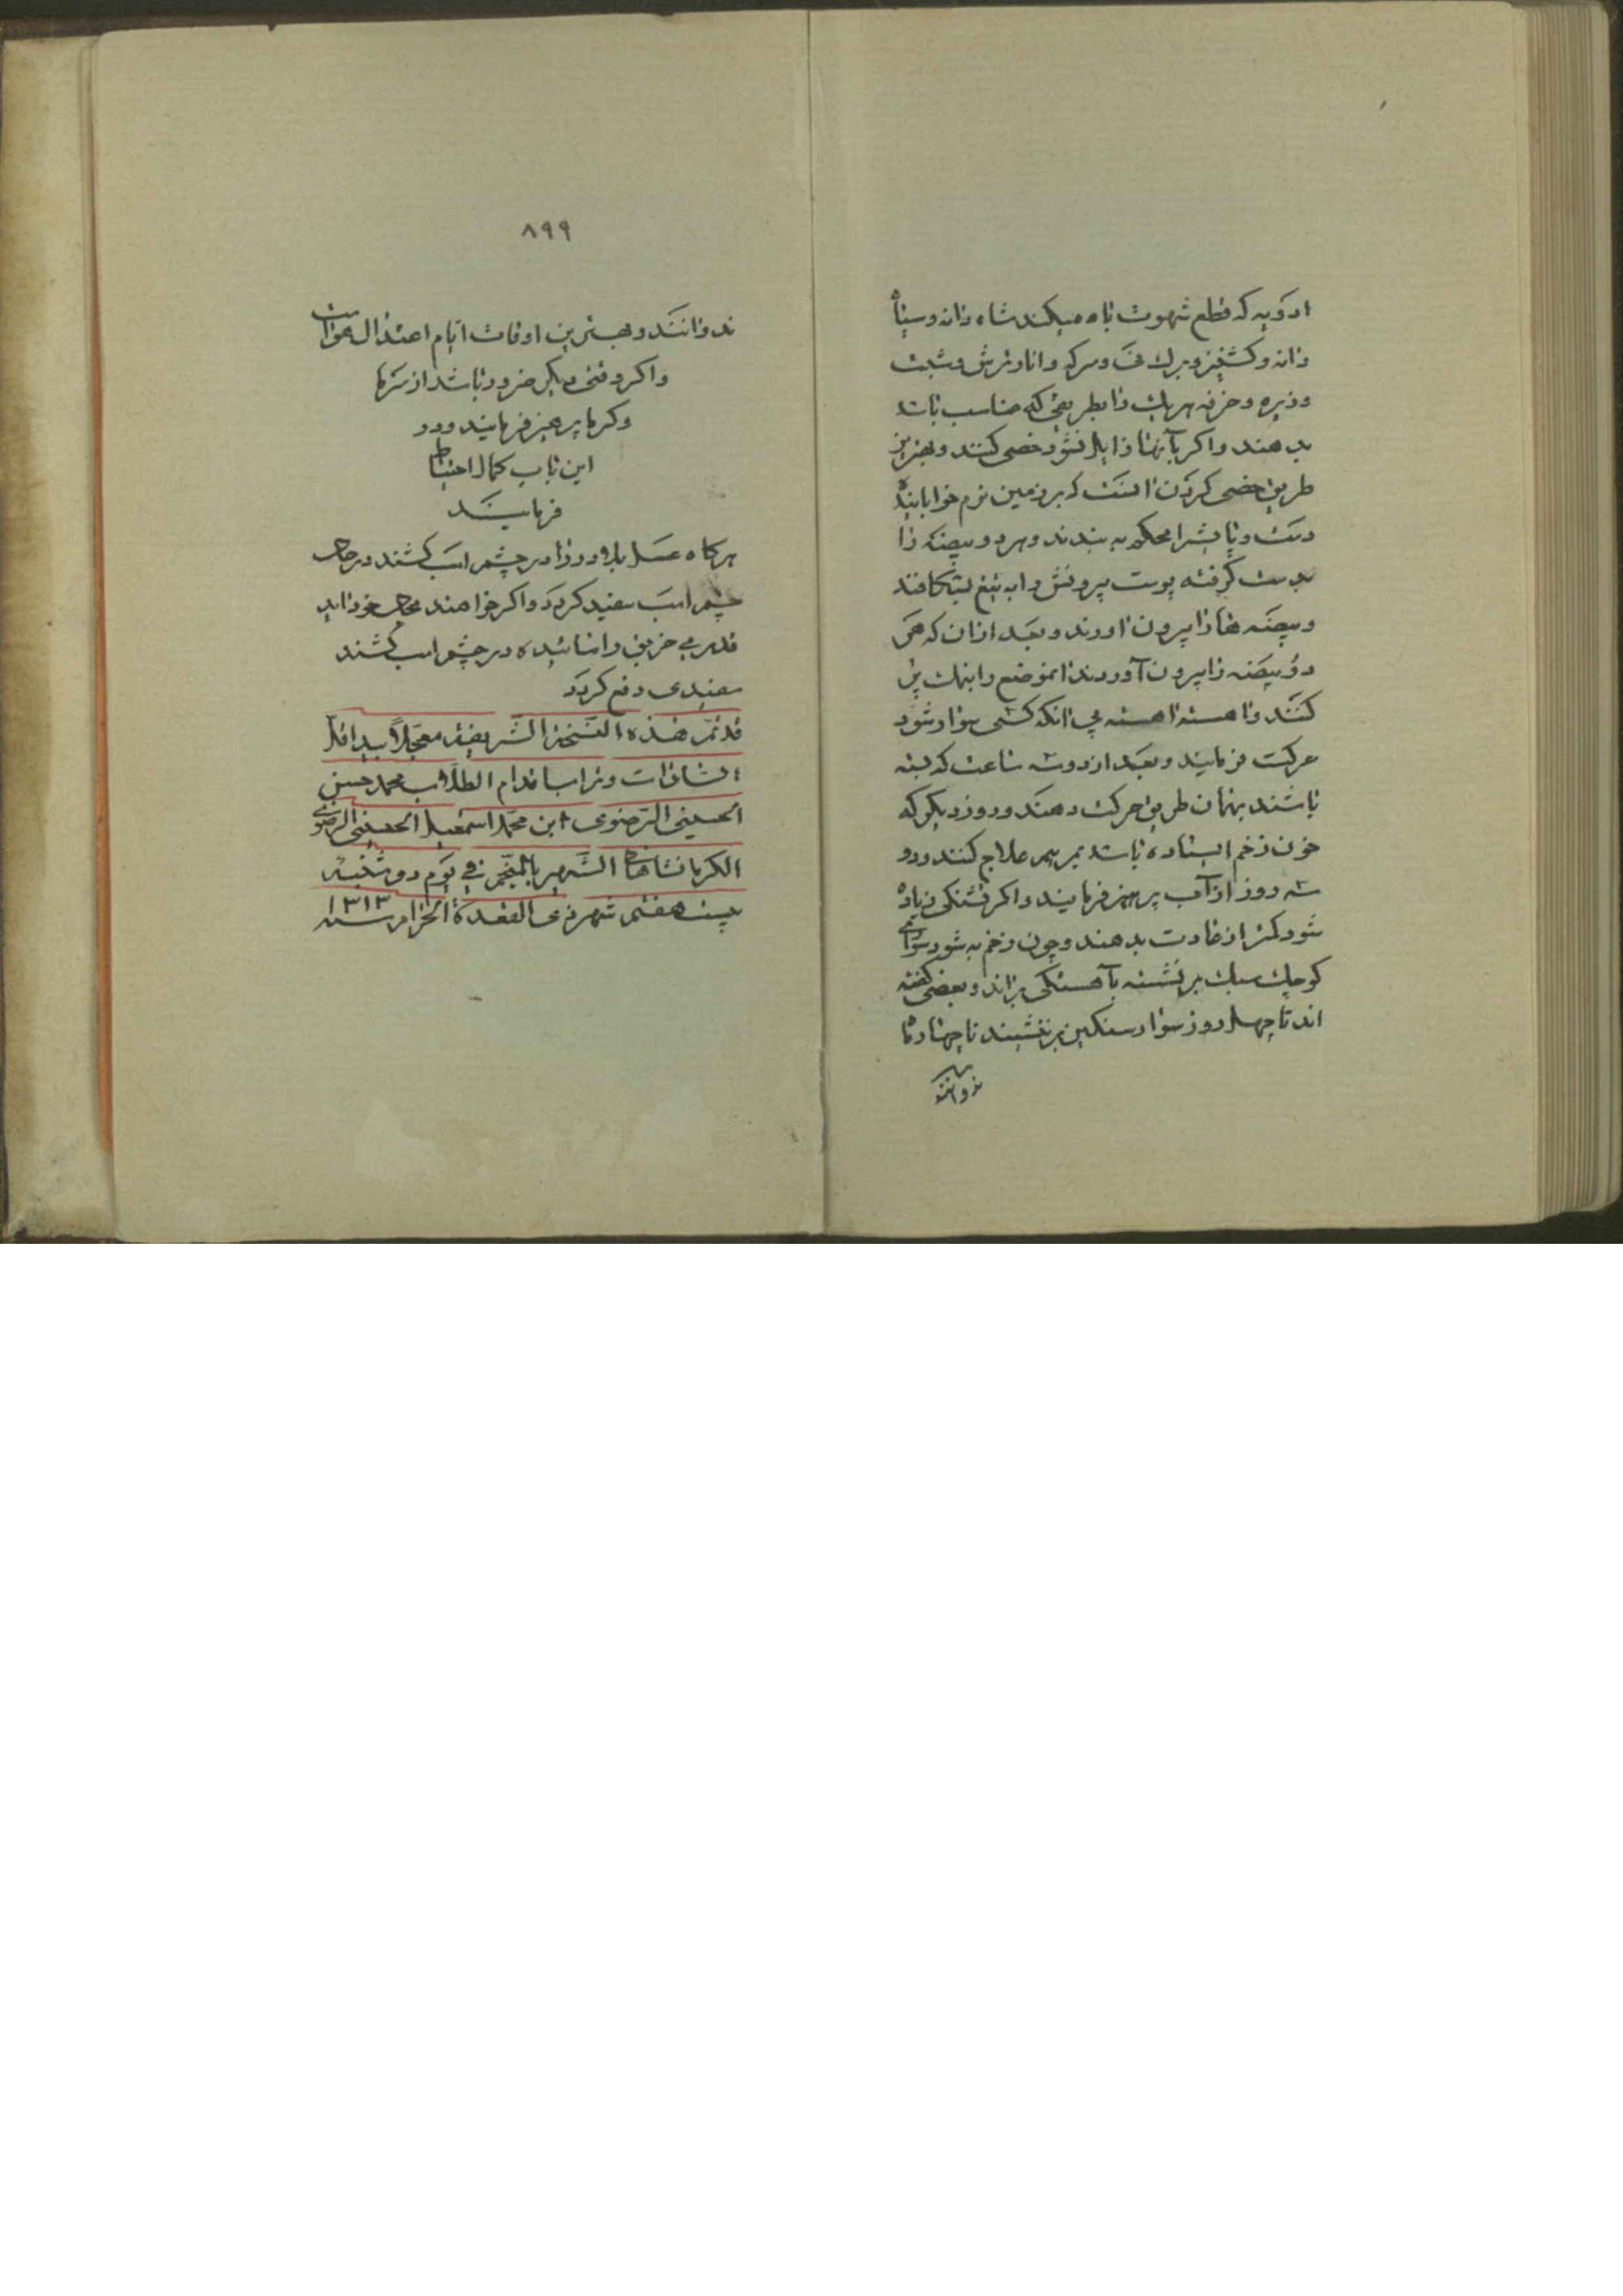 ادویه که قطع شهوت باه میکند شاه دانه و سیاه
دانه و کشنیز و برك نی و سرکه و انار ترش و شبت
و زیره و خرفه هریك را بطریقی که مناسب باشد
بدهند و اکر بآنها زایل نشود خصی کنند و بهترین
طریق خصی کردن انست که بر زمین نرم خوابانیده
دست و پایش را محکم به بندند و هر دو بیضه را
بدست کرفته پوست بیرونش را به تیغ بشکافند
و بیضه ها را بیرون اورند و بعد از ان که هر
دو بیضه را بیرون آوردند انموضع را بنمك پر
کنند و اهسته اهسته بی انکه کسی سوار شود
حرکت فرمایند و بعد از دو سه ساعت که بسته
باشند بهمان طریق حرکت دهند و روز دیکر که
خون زخم ایستاده باشد بمرهم علاج کنند و دو
سه روز از آب پرهیز فرمایند و اکر تشنکی زیاده
شود کمتر از عادت بدهند و چون زخم به شود سواری
کوچك سبك بر نشسته بآهستکی براند و بعضی کفته
اند تا چهل روز سوار سنکین بر ننشیند تا چهار ماه
ندوانند
۸۹۹
ندوانند و بهترین اوقات ایام اعتدال هواست
و اکر وقتی دیکر ضرور باشد از سرما
و کرما پرهیز فرمایند و در
این باب کمال احتیاط
فرمایند
هرکاه عسل بلادور را در چشم اسب کشند در حال
چشم اسب سفید کردد و اکر خواهند بحال خود اید
قدری خربق را سائیده در چشم اسب کشند
سفیدی دفع کردد
قد تمّ هذه النسخة الشریفة معجّلاً بید اقل
السادات و تراب اقدام الطلاب محمد حسن
الحسینی الرضوی ابن محمد اسمعیل الحسینی الرضوی
الکرمانشاهانی الشهیر بالمنجم فی یوم دوشنبه
بیست هفتم شهر ذی القعدة الحرام سنه ۱۳۱۳